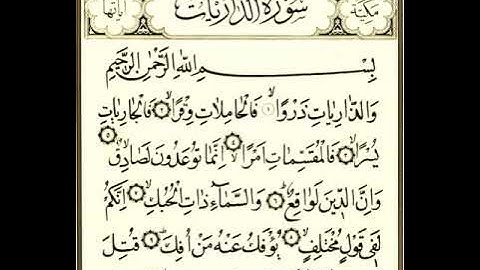 مكية سورة الذاريات آياتها
بِسْمِ اللّٰهِ الرَّحْمٰنِ الرَّحِيمِ
وَالذَّارِيَاتِ ذَرْوًاۙ ١ فَالْحَامِلَاتِ وِقْرًاۙ ٢ فَالْجَارِيَاتِ
يُسْرًاۙ ٣ فَالْمُقَسِّمَاتِ اَمْرًاۙ ٤ اِنَّمَا تُوعَدُونَ لَصَادِقٌۙ ٥
وَاِنَّ الدِّينَ لَوَاقِعٌۜ ٦ وَالسَّمَاۤءِ ذَاتِ الْحُبُكِۙ ٧ اِنَّكُمْ
لَفِي قَوْلٍ مُخْتَلِفٍۙ ٨ يُؤْفَكُ عَنْهُ مَنْ اُفِكَۜ ٩ قُتِلَ